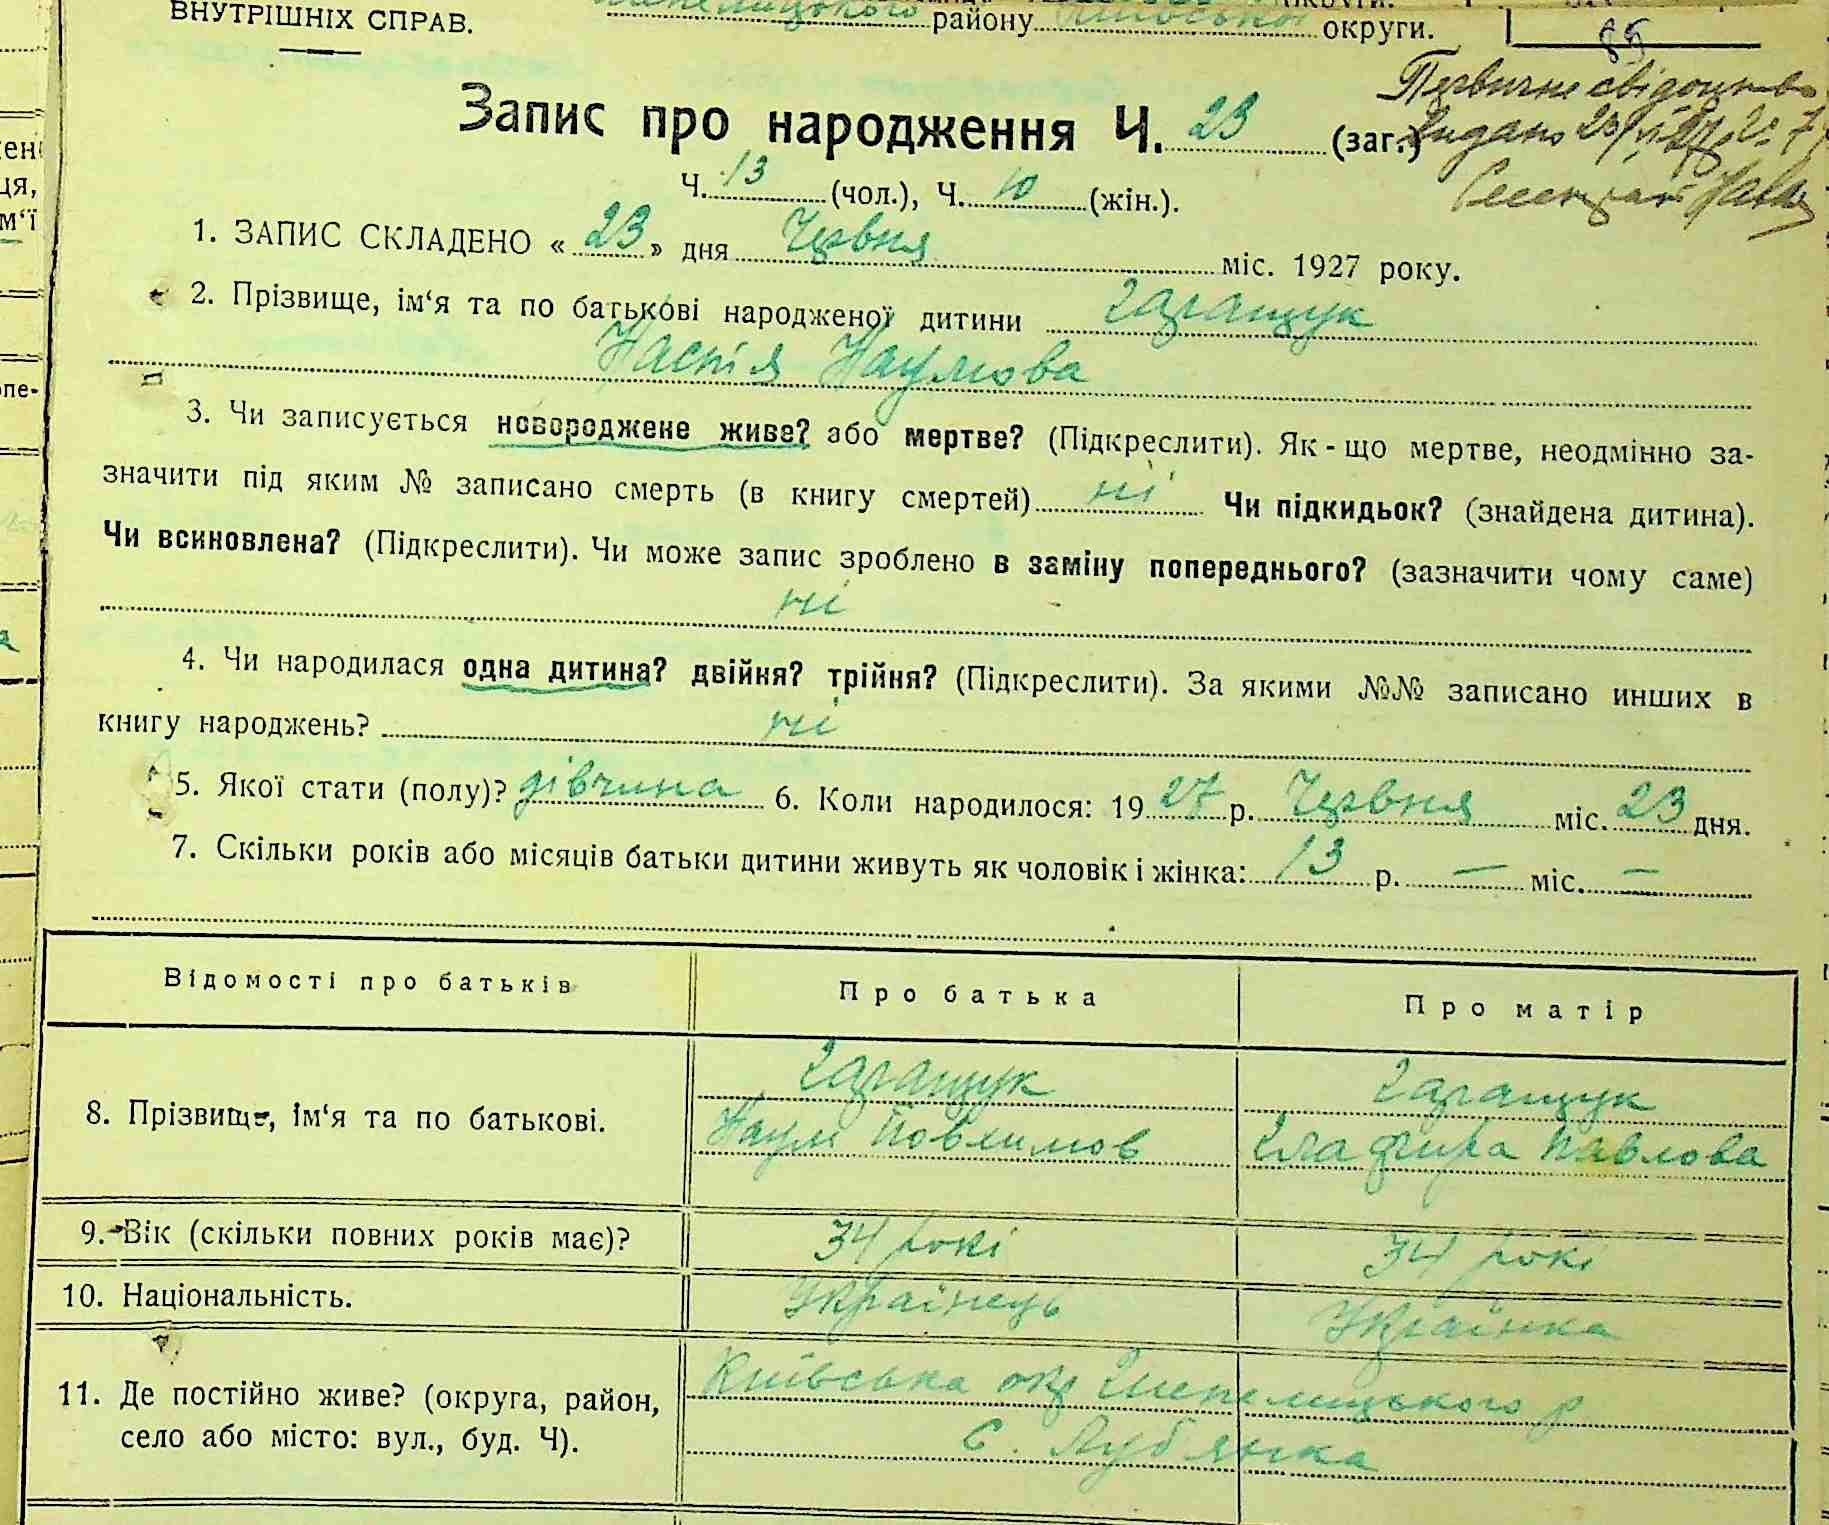 ВНУТРІШНІХ СПРАВ.
району Київської округи.
85
Первичне свідоцтво
Видано 23/VI 27
Секретар
Запис про народження Ч. 23 (заг.)
Ч. 13 (чол.), Ч. 10 (жін.).
1. ЗАПИС СКЛАДЕНО « 23 » дня Червня міс. 1927 року.
2. Прізвище, ім‘я та по батькові народженої дитини Гаращук
Настія Наумова
3. Чи записується новороджене живе? або мертве? (Підкреслити). Як-що мертве, неодмінно за-
значити під яким № записано смерть (в книгу смертей) ні Чи підкидьок? (знайдена дитина).
Чи всиновлена? (Підкреслити). Чи може запис зроблено в заміну попереднього? (зазначити чому саме)
ні
4. Чи народилася одна дитина? двійня? трійня? (Підкреслити). За якими №№ записано инших в
книгу народжень? ні
5. Якої стати (полу)? дівчина 6. Коли народилося: 1927 р. Червня міс. 23 дня.
7. Скільки років або місяців батьки дитини живуть як чоловік і жінка: 13 р. — міс. —
Відомості про батьків
Про батька
Про матір
8. Прізвище, ім‘я та по батькові.
Гаращук
Наум
Гаращук
Глафира Павлова
9. Вік (скільки повних років має)?
34 рокі
34 рокі
10. Національність.
Українець
Українка
11. Де постійно живе? (округа, район,
село або місто: вул., буд. Ч).
Київська окр Шепелицького р
с. Луб'янка